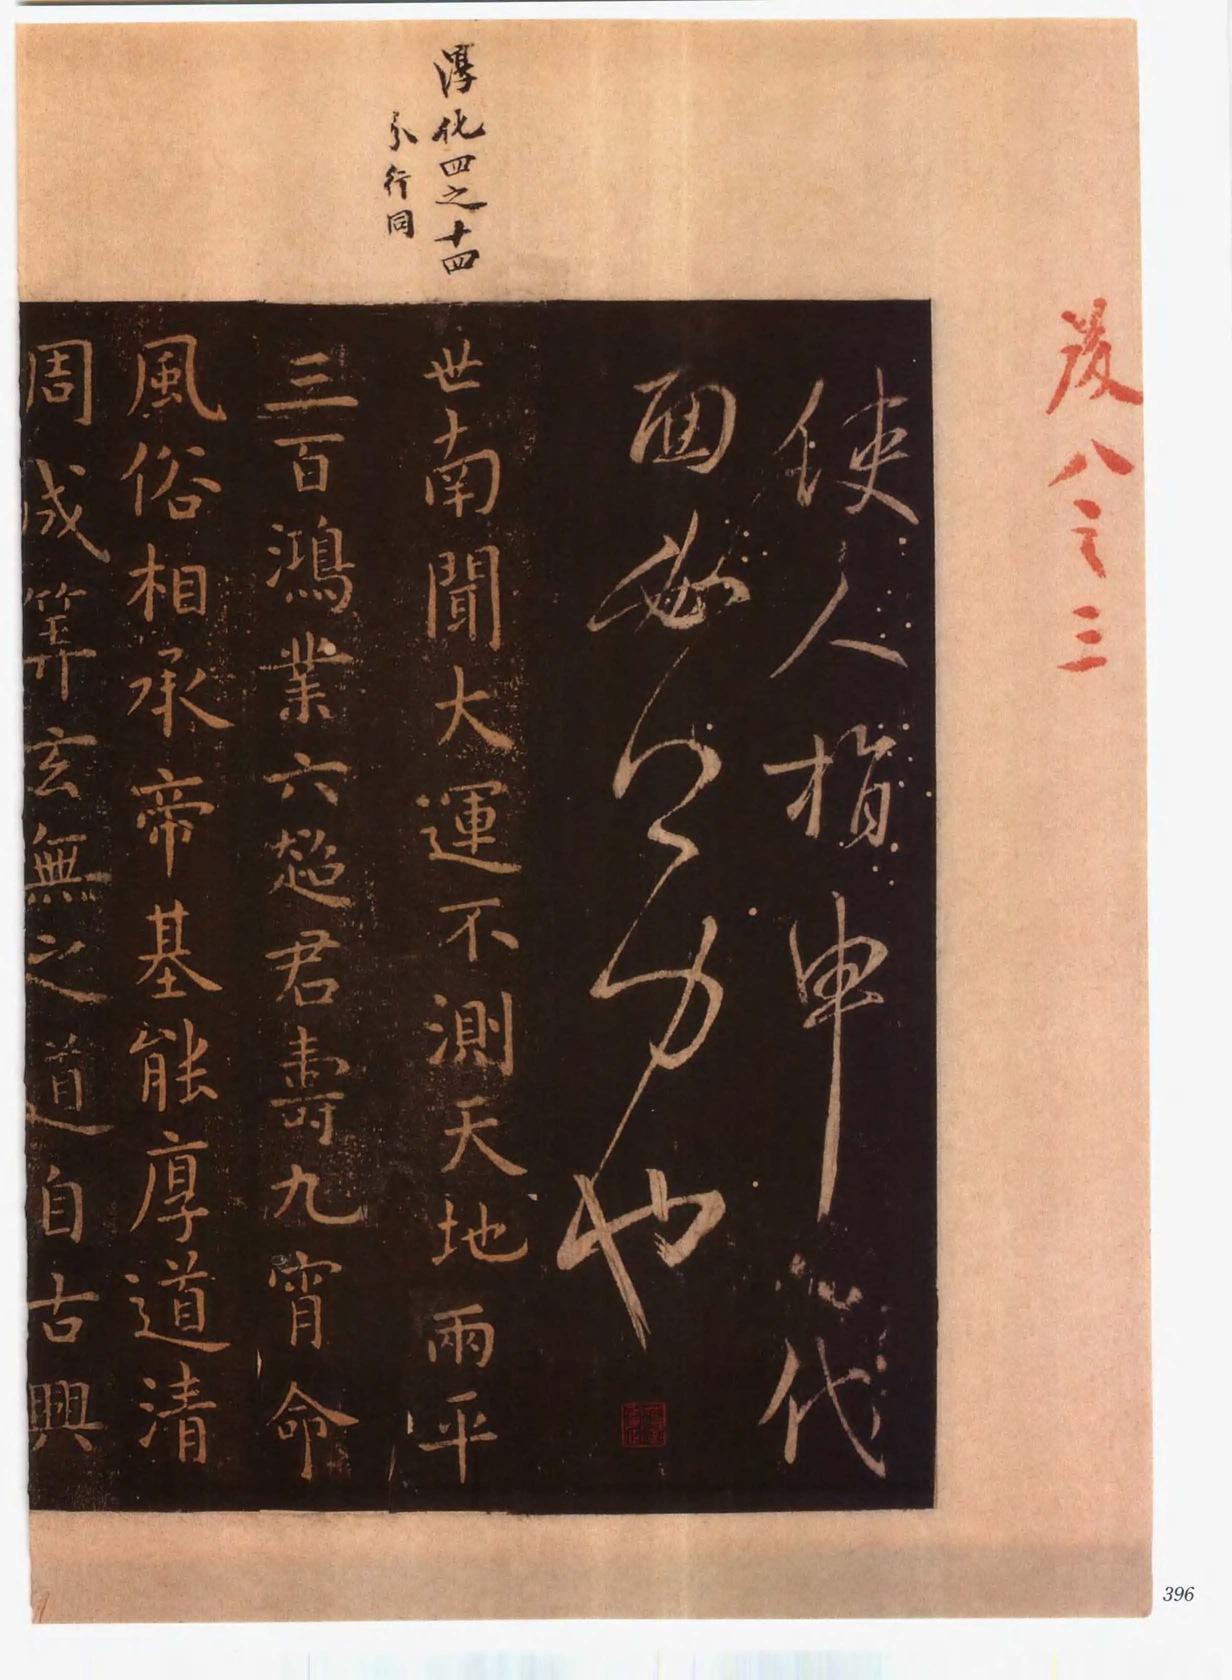 後八之三
淳化四之十四
分行同
使人指申代
面必力也
世南聞大運不測天地兩平
三百鴻業六超君壽九霄命
風俗相承帝基能厚道清
周成筭玄無之道自古興
396